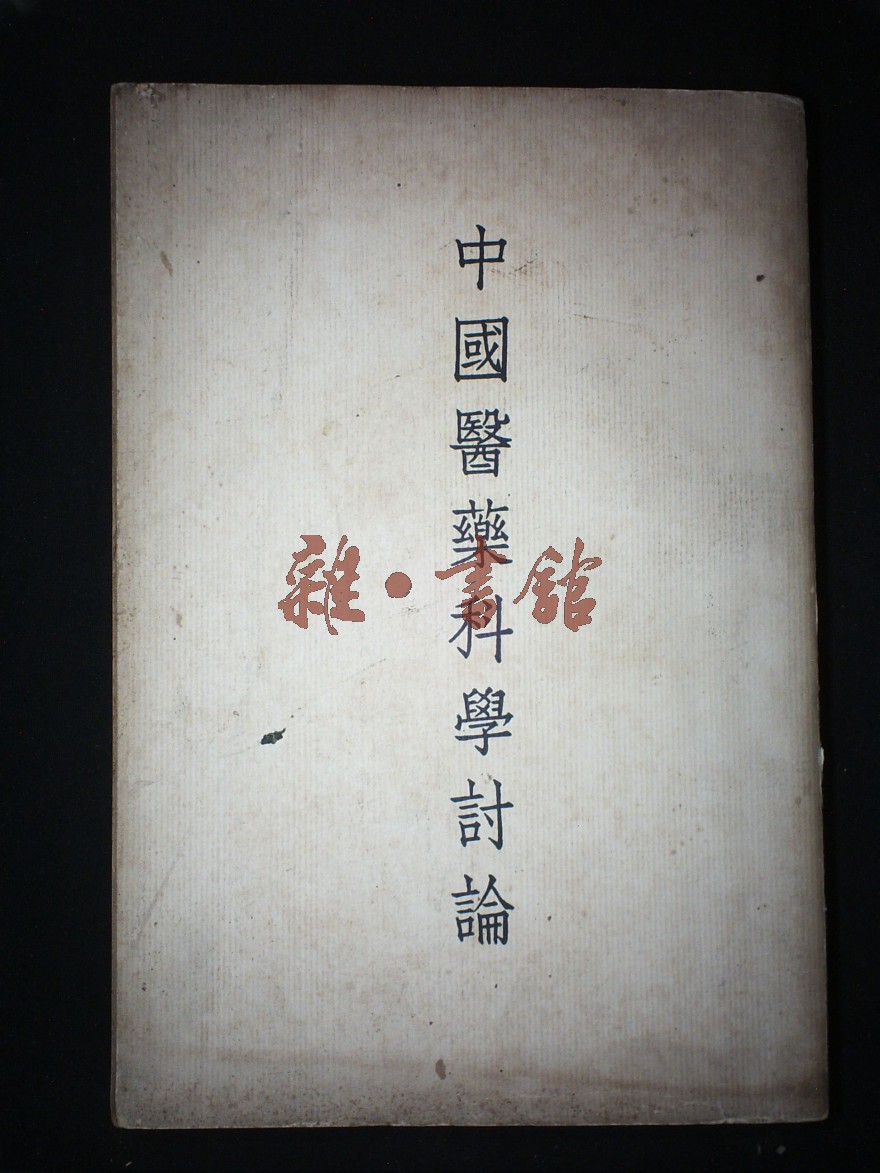 中國醫藥科學討論
雜·書館